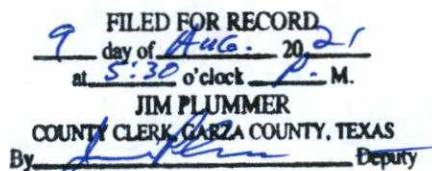 FILED FOR RECORD
9 day of Aug. 2021
at 5:30 o'clock P. M.
JIM PLUMMER
COUNTY CLERK, GARZA COUNTY, TEXAS
By Deputy